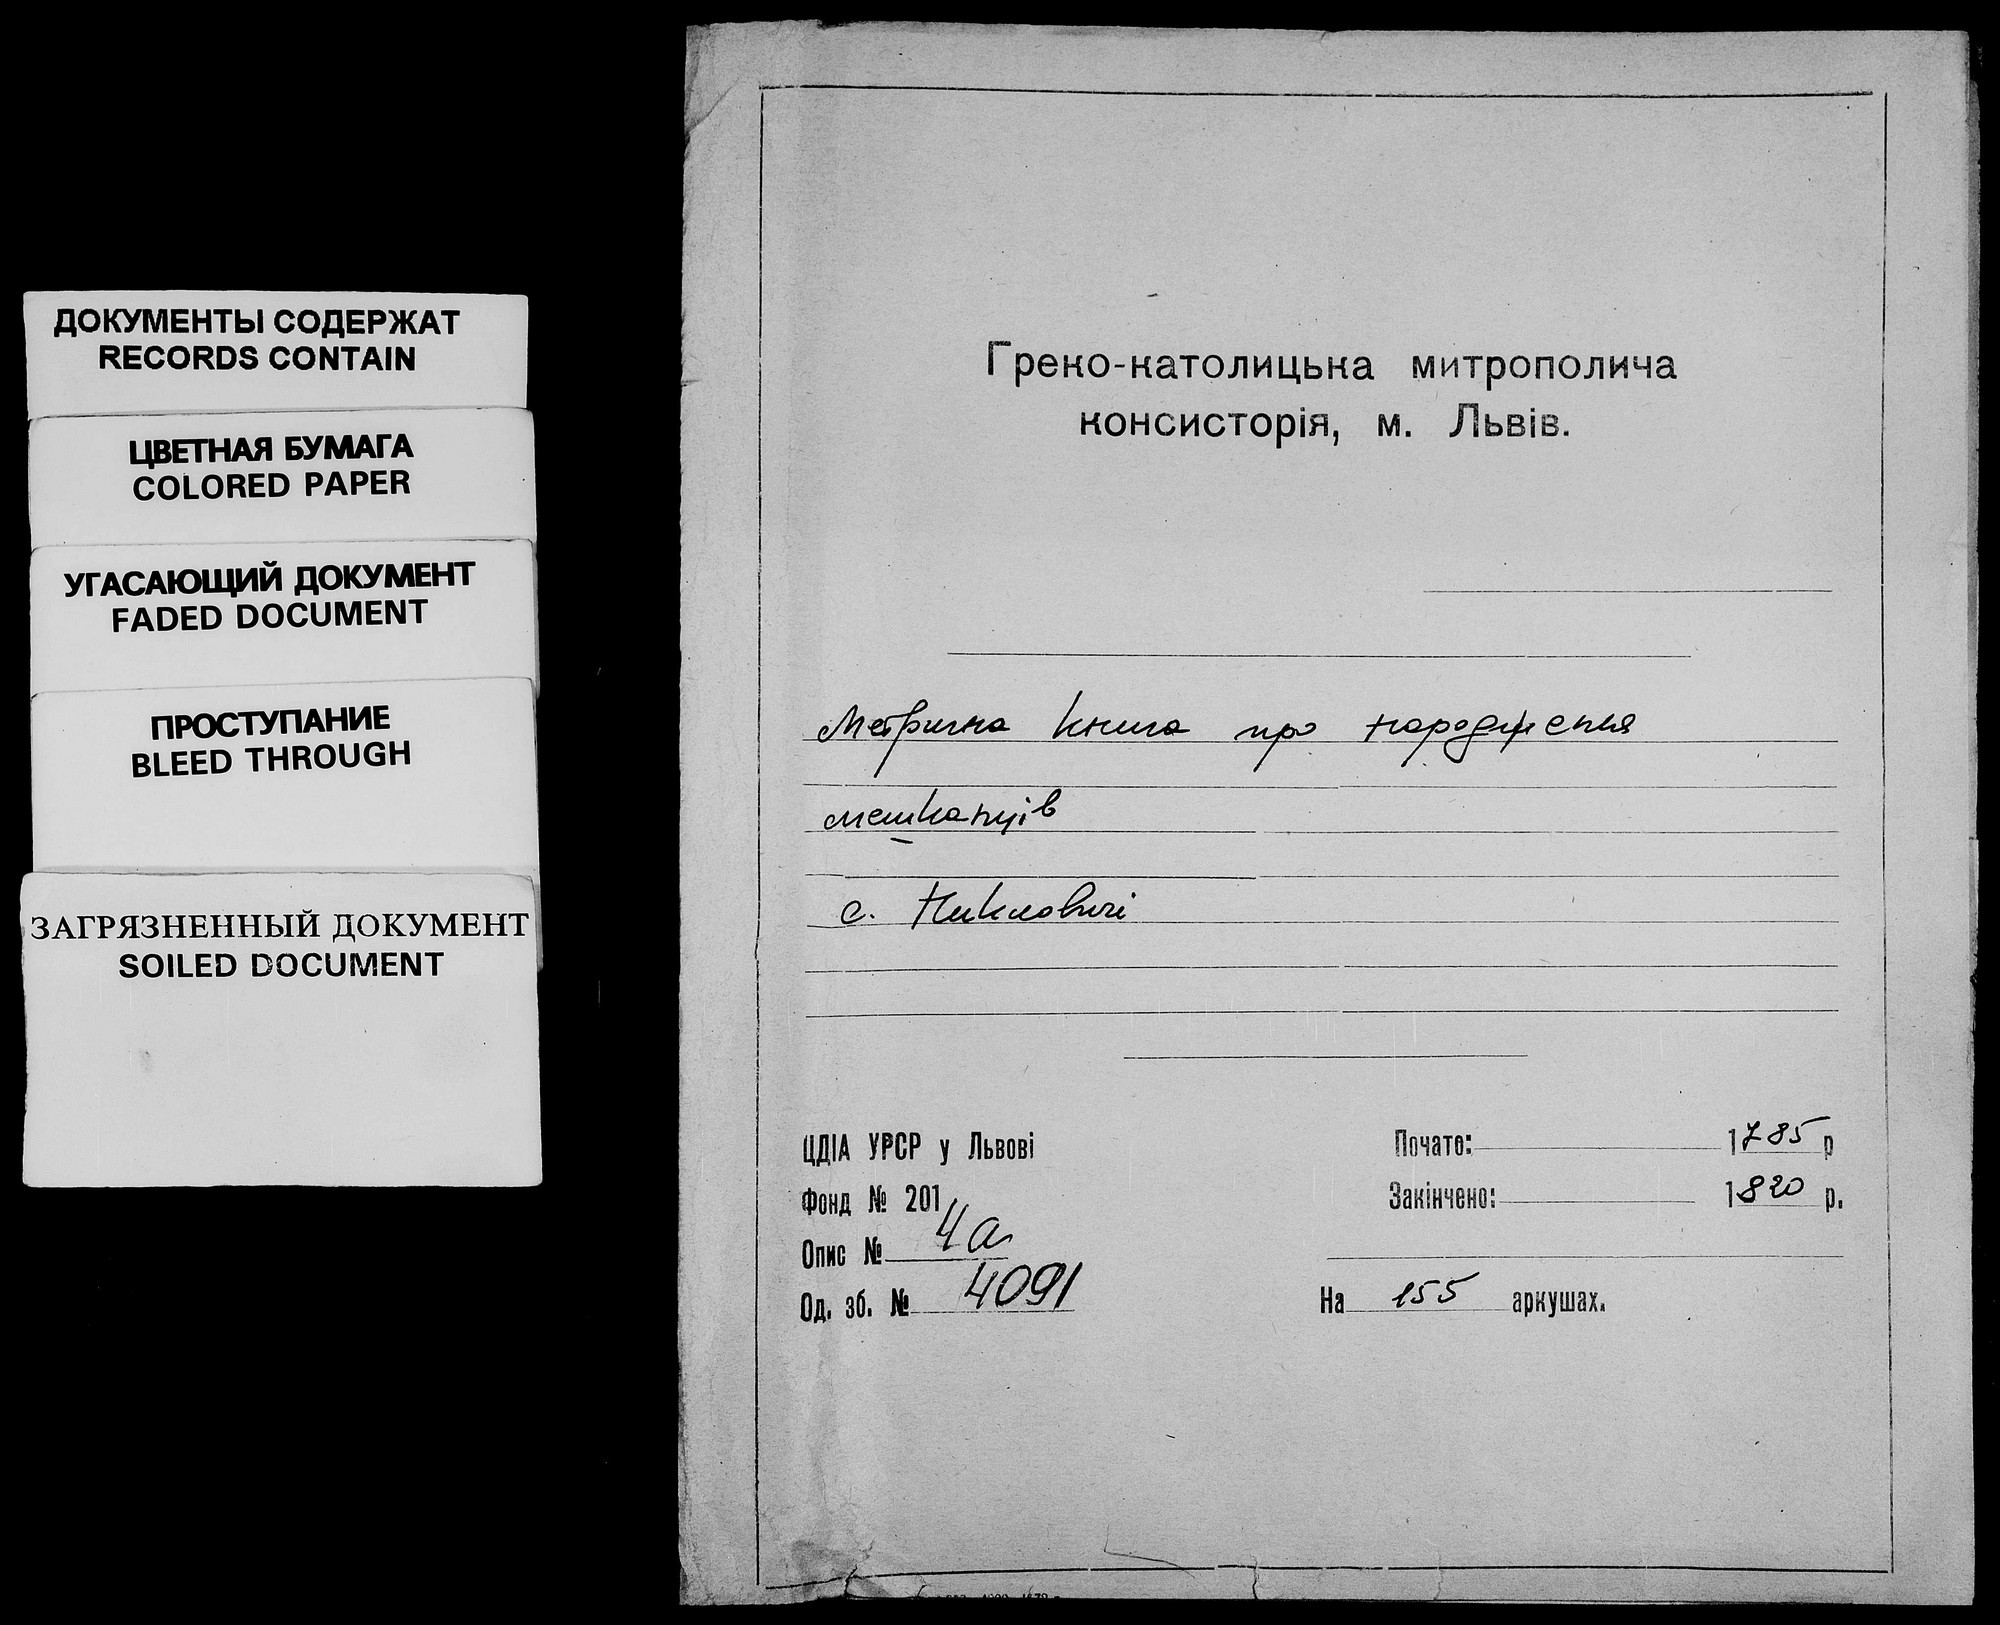 ДОКУМЕНТЫ СОДЕРЖАТ
RECORDS CONTAIN
ЦВЕТНАЯ БУМАГА
COLORED PAPER
УГАСАЮЩИЙ ДОКУМЕНТ
FADED DOCUMENT
ПРОСТУПАНИЕ
BLEED THROUGH
ЗАГРЯЗНЕННЫЙ ДОКУМЕНТ
SOILED DOCUMENT
Греко-католицька митрополича
консисторія, м. Львів.
Метрична книга про народження
мешканців
с. Никловичі
ЦДІА УРСР у Львові
Фонд № 201
Опис № 4а
Од. зб. № 4091
Почато: 1785 р
Закінчено: 1820 р.
На 155 аркушах.